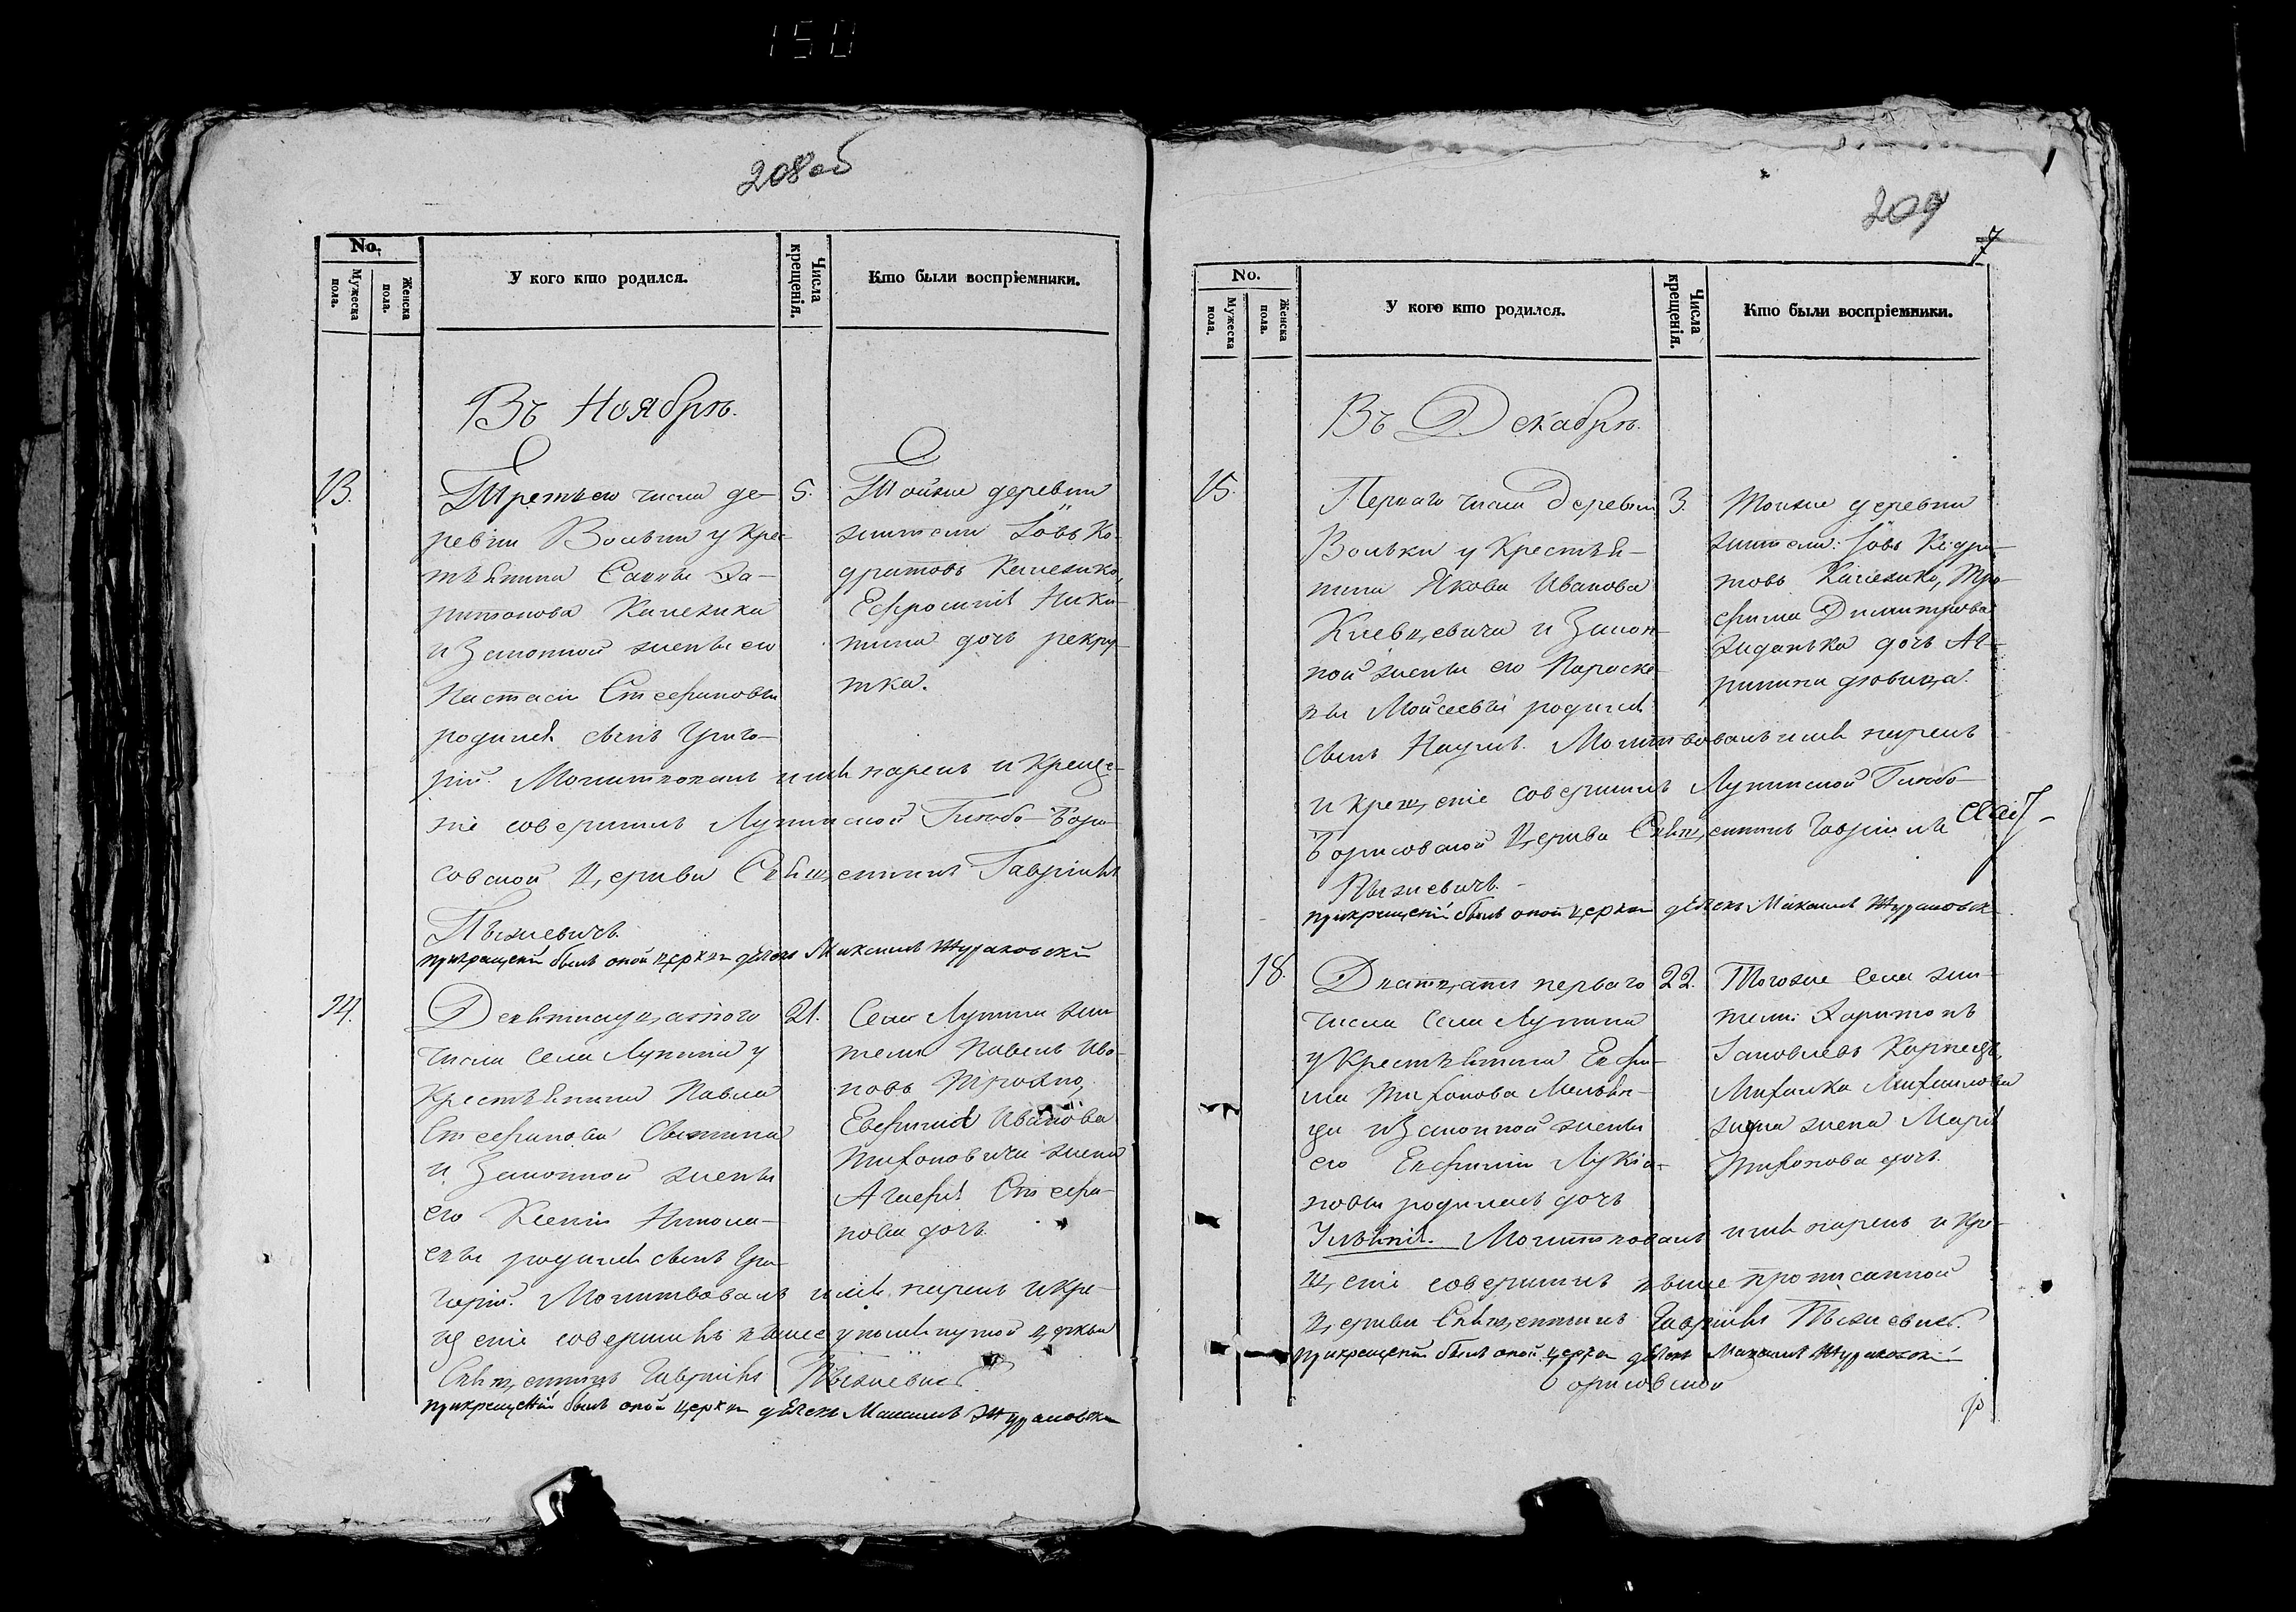 150
208 об
No.
Мужеска пола.
Женска пола.
У кого кто родился.
Числа крещенія.
Кто были воспріемники.
Въ Ноябрѣ.
13.
Третьего числа де-
ревни Вольки у Кре-
стьянина Саввы Ха-
ритонова
и Законной жены его
Настасіи Стефановы
родился сынъ Григо-
рій. Молитвовалъ имя нарекъ и креще-
ніе совершилъ Лунинской Глѣбо-Бори-
совской Церкви Священникъ Гавріилъ
при крещеніи былъ оной церкви дьячекъ Жураковскій
5.
Тойже деревни
жители Іовъ Ко-
дратовъ
Ефросинія Ники-
тина дочь рекру-
тка.
14.
Девятнадцатого
числа села Лунина у
Крестьянина Павла
Стефанова
и Законной жены
его Ксеніи Никола-
евы родился сынъ Гри-
горій. Молитвовалъ имя нарекъ и кре-
щеніе совершилъ выше упомянутой церкви
Священникъ Гавріилъ
при крещеніи былъ оной церкви дьячекъ Жураковскій
21.
Села Лунина жи-
тели Павелъ Ива-
новъ
Иванова
Тихоновича жена
Агафія Стефа-
нова дочь.
209
7
No.
Мужеска пола.
Женска пола.
У кого кто родился.
Числа крещенія.
Кто были воспріемники.
Въ Декабрѣ.
15.
Перваго числа деревни
Вольки у Крестья-
нина Якова Иванова
и Закон-
ной жены его Параске-
вы Мойсеевы родился
сынъ Наумъ. Молитвовалъ имя нарекъ
и крещеніе совершилъ Лунинской Глѣбо-
Борисовской Церкви Священникъ Гавріилъ
при крещеніи былъ оной церкви дьячекъ Жураковск
3.
Тойже деревни
жители: Іовъ Кодра-
товъ Тро-
фима Димитрова
дочь Аг-
рипина дѣвица.
18.
Двадцать перваго
числа села Лунина
у Крестьянина Евфи-
ма Тихонова
и Законной жены
его Евфиміи Лукія-
новы родилась дочь
Іуліянія. Молитвовалъ имя нарекъ и кре-
щеніе совершилъ выше прописанной
церкви Священникъ Гавріилъ
при крещеніи былъ оной церкви дьячекъ Жураковскій
Борисовской
22.
Тогоже села жи-
тели: Харитонъ
Іаковлевъ
Михайлова
жена Марія
Тихонова дочь.